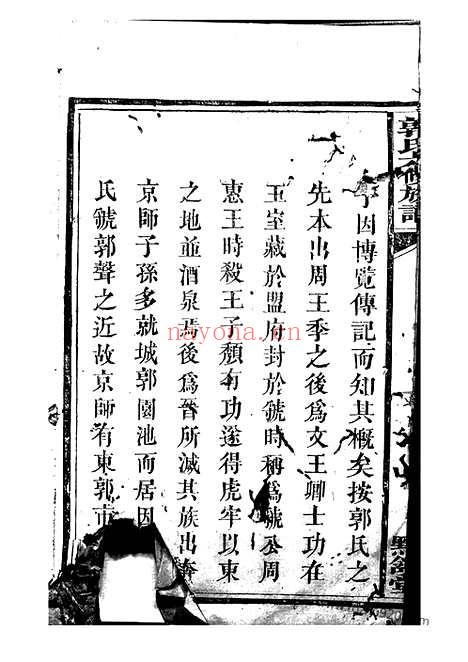 郭氏族譜
予因博覽傳記而知其概矣按郭氏之
先本出周王季之後爲文王卿士功在
王室藏於盟府封於虢時稱爲虢公周
惠王時殺王子頽有功遂得虎牢以東
之地並酒泉焉後爲晉所滅其族出奔
京師子孫多就城郭園池而居因
氏虢郭聲之近故京師有東郭市
nayona.cn